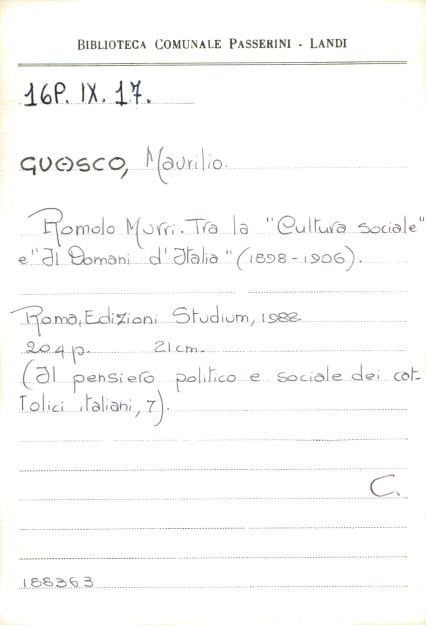 BIBLIOTECA COMUNALE PASSERINI - LANDI
16P. IX. 17.
GUASCO, Maurilio.
Romolo Murri. Tra la "Cultura sociale"
e "Il Domani d'Italia" (1898-1906).
Roma, Edizioni Studium, 1988.
204 p. 21 cm.
(Il pensiero politico e sociale dei cat-
tolici italiani, 7).
C.
188363